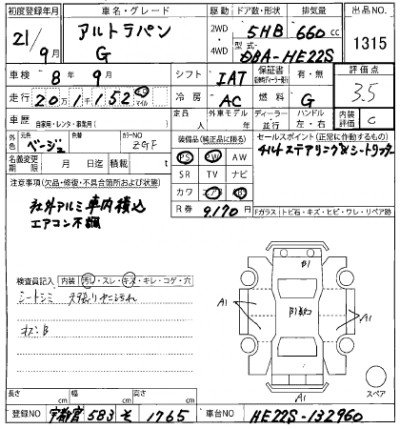 初度登録年月 車名・グレード 駆動 ドア数・形状 排気量 出品NO
21/9月 アルトラパン G 2WD 4WD 5HB 660cc 1315
型式 DBA-HE22S
車検 8年9月 シフト IAT 保証書 有・無 評価点 3.5
走行 20万1千152 マイル 冷房 AC 燃料 G
車歴 自家用・レンタ・事業用( ) 定員 人 外車モデル 年 ディーラー・並行 ハンドル 左・右 内装評価 C
外色 元色 ベージュ 色替 カラーNO ZGF 装備品(純正品に限る) セールスポイント(正常に作動するもの)
名義変更期限 月 日迄 積載量 t PS PW AW チルトステアリング&シートリフター
SR TV ナビ
注意事項(欠品・修復・不具合箇所および状態) カワ エアB
社外アルミ車内積込 R券 9,170円
エアコン不調 Fガラス トビ石・キズ・ヒビ・ワレ・リペア跡
検査員記入 内装 汚レ・スレ・キズ・キレ・コゲ・穴
シートシミ
B1
A1 A1
A1
スペア
長さ cm 幅 cm 高さ cm
登録NO 宇都宮 583 そ 1765 車台NO HE22S-132960